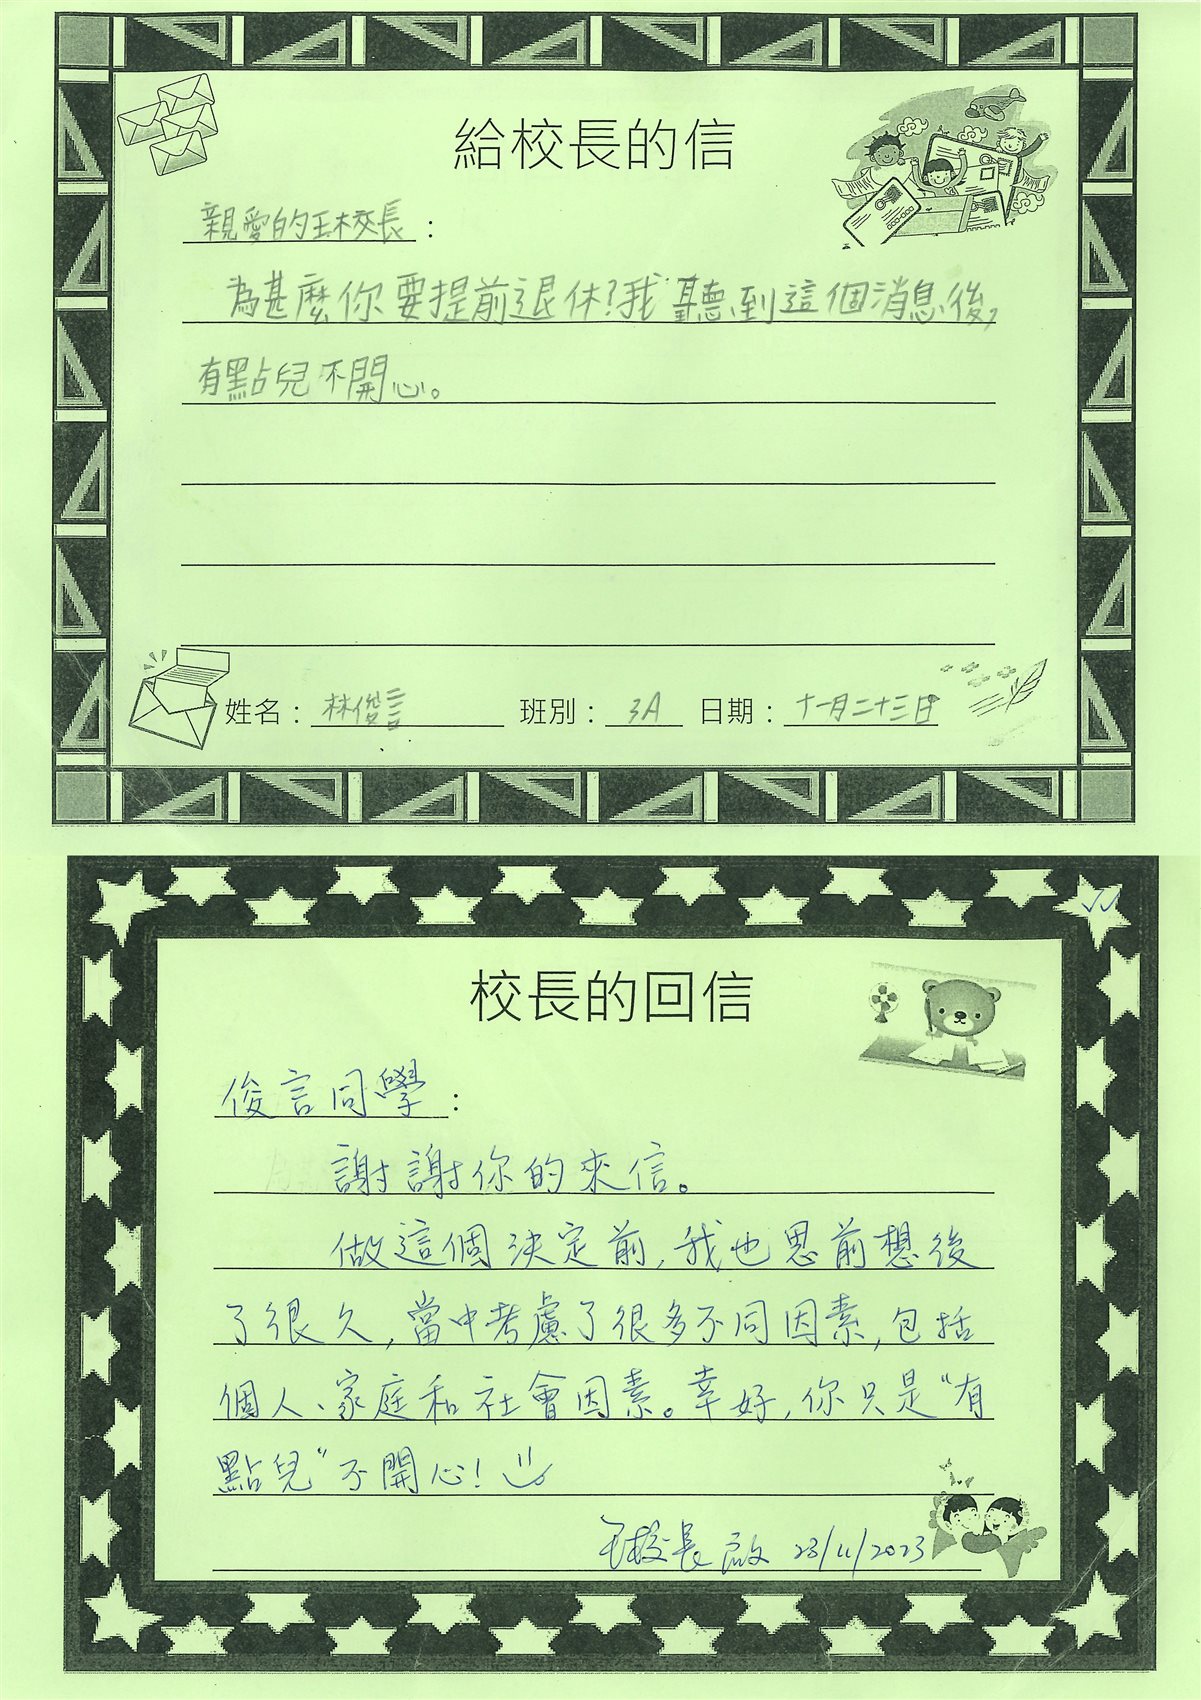 給校長的信
親愛的王校長：
為甚麼你要提前退休?我聽到這個消息後,
有點兒不開心。
姓名：林俊言 班別：3A 日期：十一月二十三日
校長的回信
俊言同學：
謝謝你的來信。
做這個決定前,我也思前想後
了很久,當中考慮了很多不同因素,包括
個人、家庭和社會因素。幸好,你只是“有
點兒”不開心!
王校長啟 23/11/2023